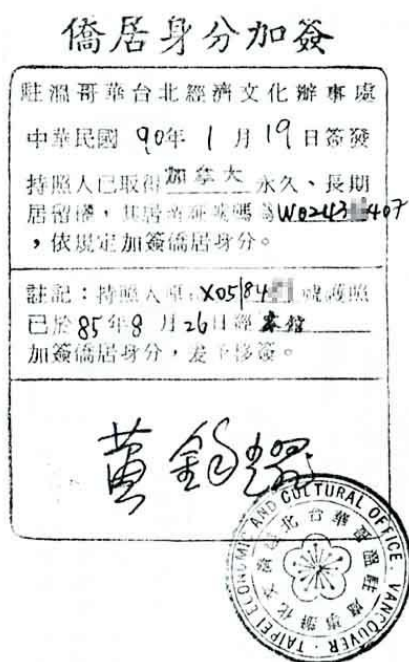 僑居身分加簽
駐溫哥華台北經濟文化辦事處
中華民國 90年 1 月 19 日簽發
持照人已取得 加拿大 永久、長期
居留權,其居留證號碼為W0243 407
,依規定加簽僑居身分。
註記:持照人原 X0584 號護照
已於 85年8 月 26日經 本館
加簽僑居身分,爰予移簽。
TAIPEI ECONOMIC AND CULTURAL OFFICE, VANCOUVER
駐溫哥華台北經濟文化辦事處